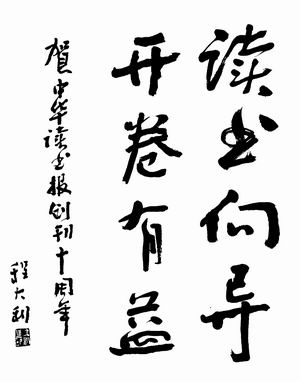 读书向导
开卷有益
贺中华读书报创刊十周年
程大利